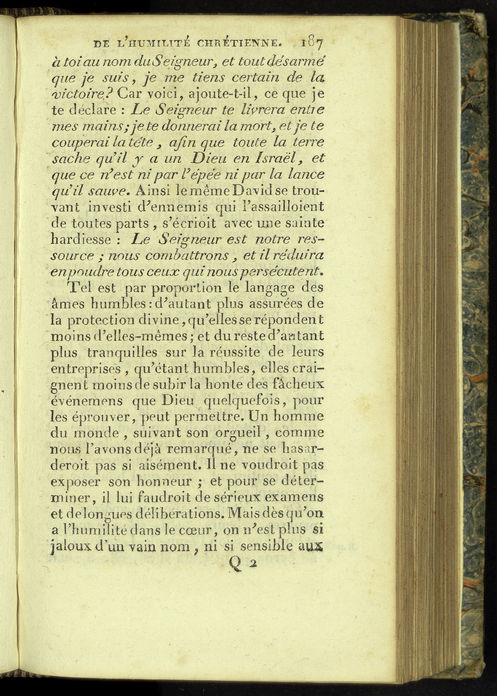 DE L'HUMILITÉ CHRÉTIENNE. 187
à toi au nom du Seigneur, et tout désarmé
que je suis, je me tiens certain de la
victoire? Car voici, ajoute-t-il, ce que je
te déclare : Le Seigneur te livrera entre
mes mains; je te donnerai la mort, et je te
couperai la tête, afin que toute la terre
sache qu'il y a un Dieu en Israël, et
que ce n'est ni par l'épée ni par la lance
qu'il sauve. Ainsi le même David se trou-
vant investi d'ennemis qui l'assailloient
de toutes parts, s'écrioit avec une sainte
hardiesse : Le Seigneur est notre res-
source ; nous combattrons, et il réduira
en poudre tous ceux qui nous persécutent.
Tel est par proportion le langage des
âmes humbles : d'autant plus assurées de
la protection divine, qu'elles se répondent
moins d'elles-mêmes ; et du reste d'autant
plus tranquilles sur la réussite de leurs
entreprises, qu'étant humbles, elles crai-
gnent moins de subir la honte des fâcheux
événemens que Dieu quelquefois, pour
les éprouver, peut permettre. Un homme
du monde, suivant son orgueil, comme
nous l'avons déjà remarqué, ne se hasar-
deroit pas si aisément. Il ne voudroit pas
exposer son honneur ; et pour se déter-
miner, il lui faudroit de sérieux examens
et de longues délibérations. Mais dès qu'on
a l'humilité dans le cœur, on n'est plus si
jaloux d'un vain nom, ni si sensible aux
Q 2